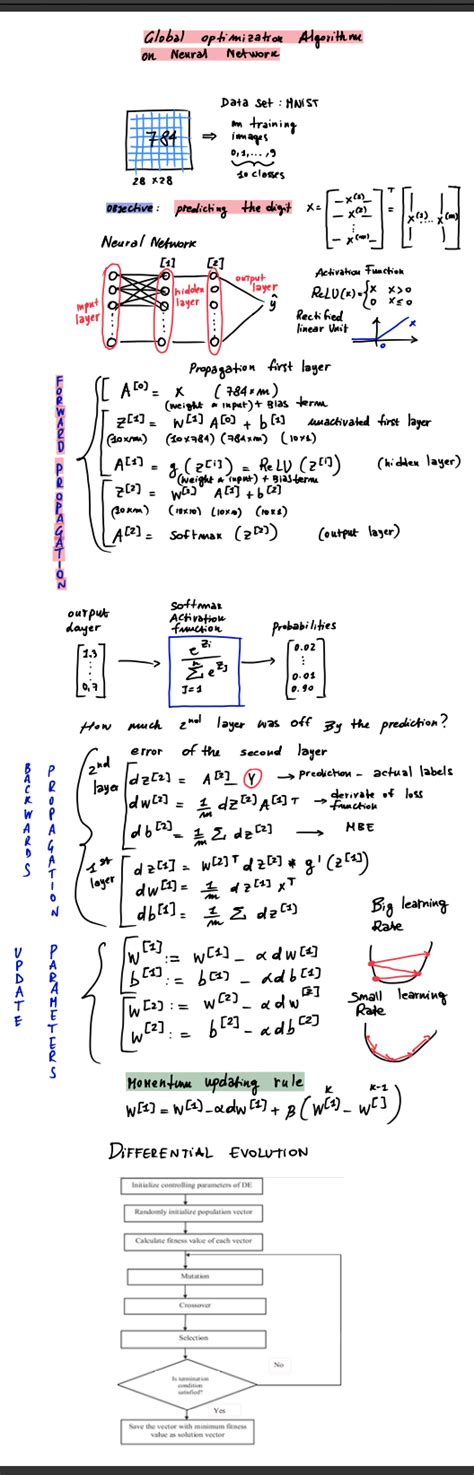 Global optimization Algorithms
on Neural Network
Data set : MNIST
784
⇒
m training
images
0,1,...,9
10 classes
28 x28
OBJECTIVE: predicting the digit
X = [ —x(1)— —x(2)— ⋮ —x(m)— ]ᵀ = [ x(1) ... x(m) ]
Neural Network
[1] [2]
input
layer
hidden
layer
output
layer
ŷ
Activation Function
ReLU(x) = { x x>0
0 x≤0
Rectified
linear Unit
x
0
FORWARD PROPAGATION
Propagation first layer
A[0] = X (784×m)
(weight * input) + Bias term
Z[1] = W[1] A[0] + b[1] unactivated first layer
(10×m) (10×784) (784×m) (10×1)
A[1] = g(Z[1]) = ReLU(Z[1]) (hidden layer)
(weight * input) + Bias term
Z[2] = W[2] A[1] + b[2]
(10×m) (10×10) (10×m) (10×1)
A[2] = softmax (Z[2]) (output layer)
output
layer
Softmax
Activation
function
Probabilities
1.3
⋮
0,7
e^Zi
Σ e^Zj
J=1
0.02
⋮
0.01
0.90
How much 2nd layer was off By the prediction?
BACKWARDS PROPAGATION
error of the second layer
2nd
layer
dZ[2] = A[2] - Y → Prediction - actual labels
dW[2] = 1/m dZ[2] A[1]T → derivate of loss
function
db[2] = 1/m Σ dZ[2] → MBE
1st
layer
dZ[1] = W[2]T dZ[2] * g'(Z[1])
dW[1] = 1/m dZ[1] XT
db[1] = 1/m Σ dZ[1]
UPDATE PARAMETERS
W[1] := W[1] - αdW[1]
b[1] := b[1] - αdb[1]
W[2] := W[2] - αdW[2]
W[2] := b[2] - αdb[2]
Big learning
Rate
Small learning
Rate
Momentum updating rule
W[1] = W[1] - αdW[1] + β(W[1]^k - W[ ]^k-1)
DIFFERENTIAL EVOLUTION
Initialize controlling parameters of DE
Randomly initialize population vector
Calculate fitness value of each vector
Mutation
Crossover
Selection
No
Is termination
condition
satisfied?
Yes
Save the vector with minimum fitness
value as solution vector